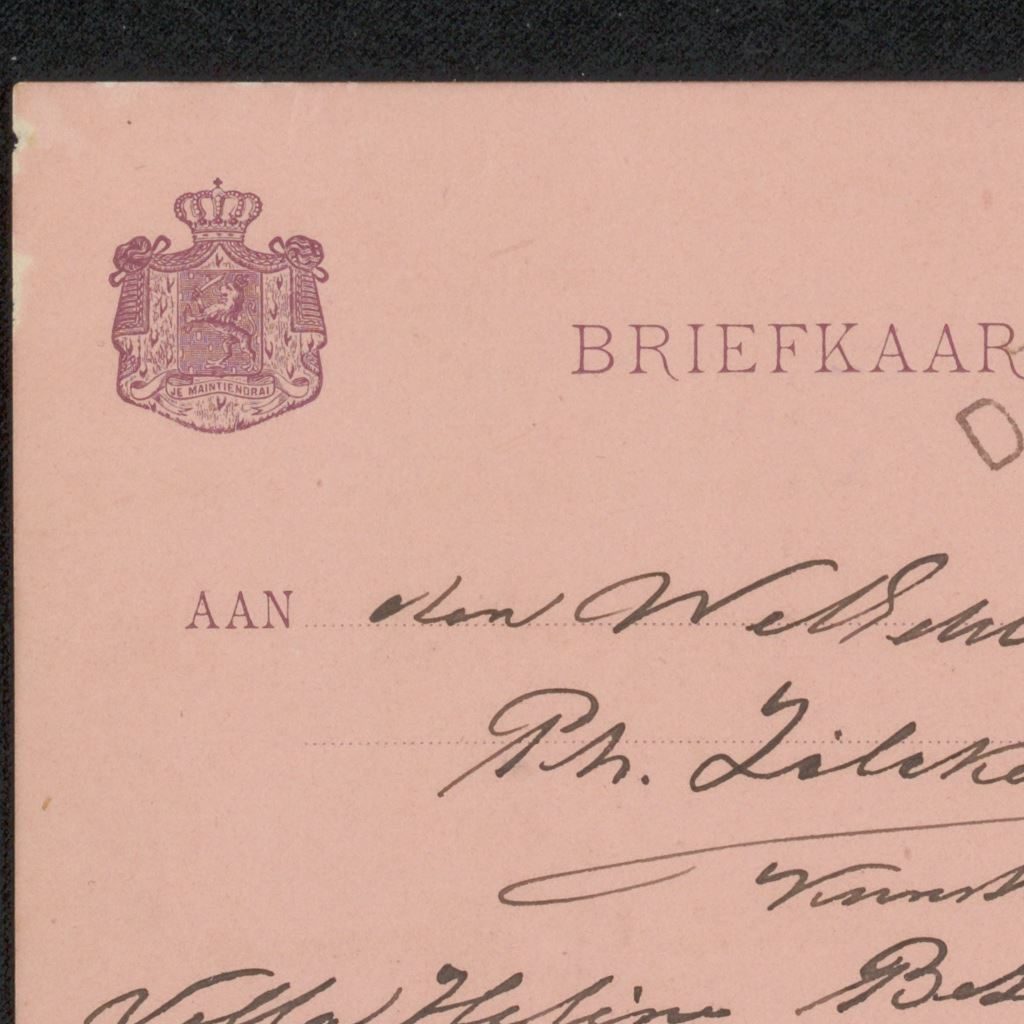 JE MAINTIENDRAI
BRIEFKAAR
D
AAN den WelEdel
Ph. Zilcke
Kunst
Villa Helene Bez